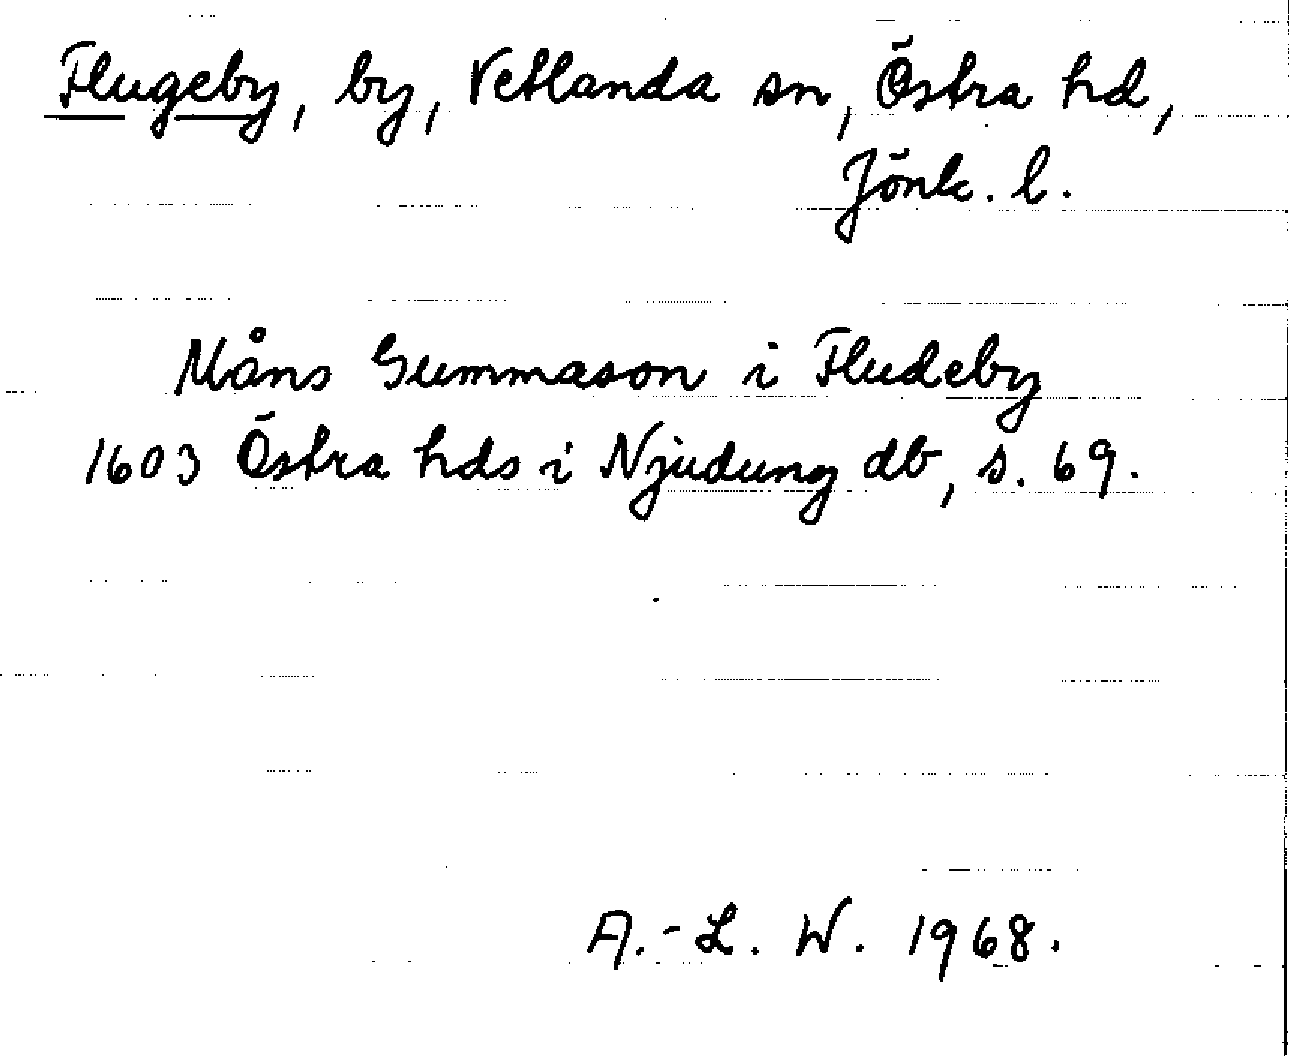 Flugeby, by, Vetlanda sn, Östra hd,
Jönk. l.
Måns Gummason i Fludeby
1603 Östra hds i Njudung db, s. 69.
A.-L. W. 1968.